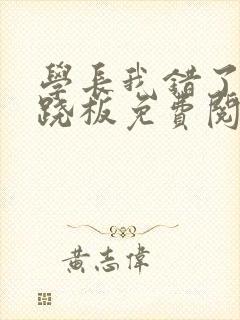 學長我錯了
跷板免費閱
黃志偉